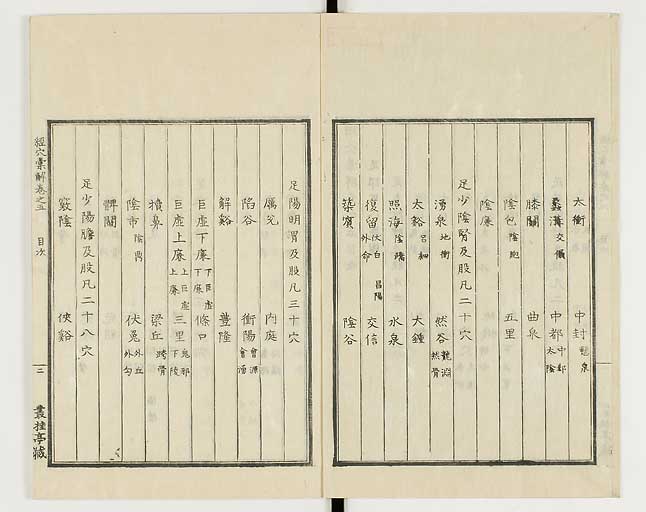 太衝 中封 懸泉
蠡溝 交儀 中都 中郄 太陰
膝關 曲泉
陰包 陰胞 五里
陰廉
足少陰腎及股凡二十穴
湧泉 地衝 然谷 龍淵 然骨
太谿 呂細 大鍾
照海 陰蹻 水泉
復留 伏白 昌陽 外命 交信
築賓 陰谷
足陽明胃及股凡三十穴
厲兌 內庭
陷谷 衝陽 會源 會湧
解谿 豐隆
巨虛下廉 下巨虛 下廉 條口
巨虛上廉 上巨虛 上廉 三里 鬼邪 下陵
犢鼻 梁丘 跨骨
陰市 陰鼎 伏兔 外丘 外勾
髀關
足少陽膽及股凡二十八穴
竅陰 俠谿
經穴彙解卷之五 目次 二 叢桂亭藏